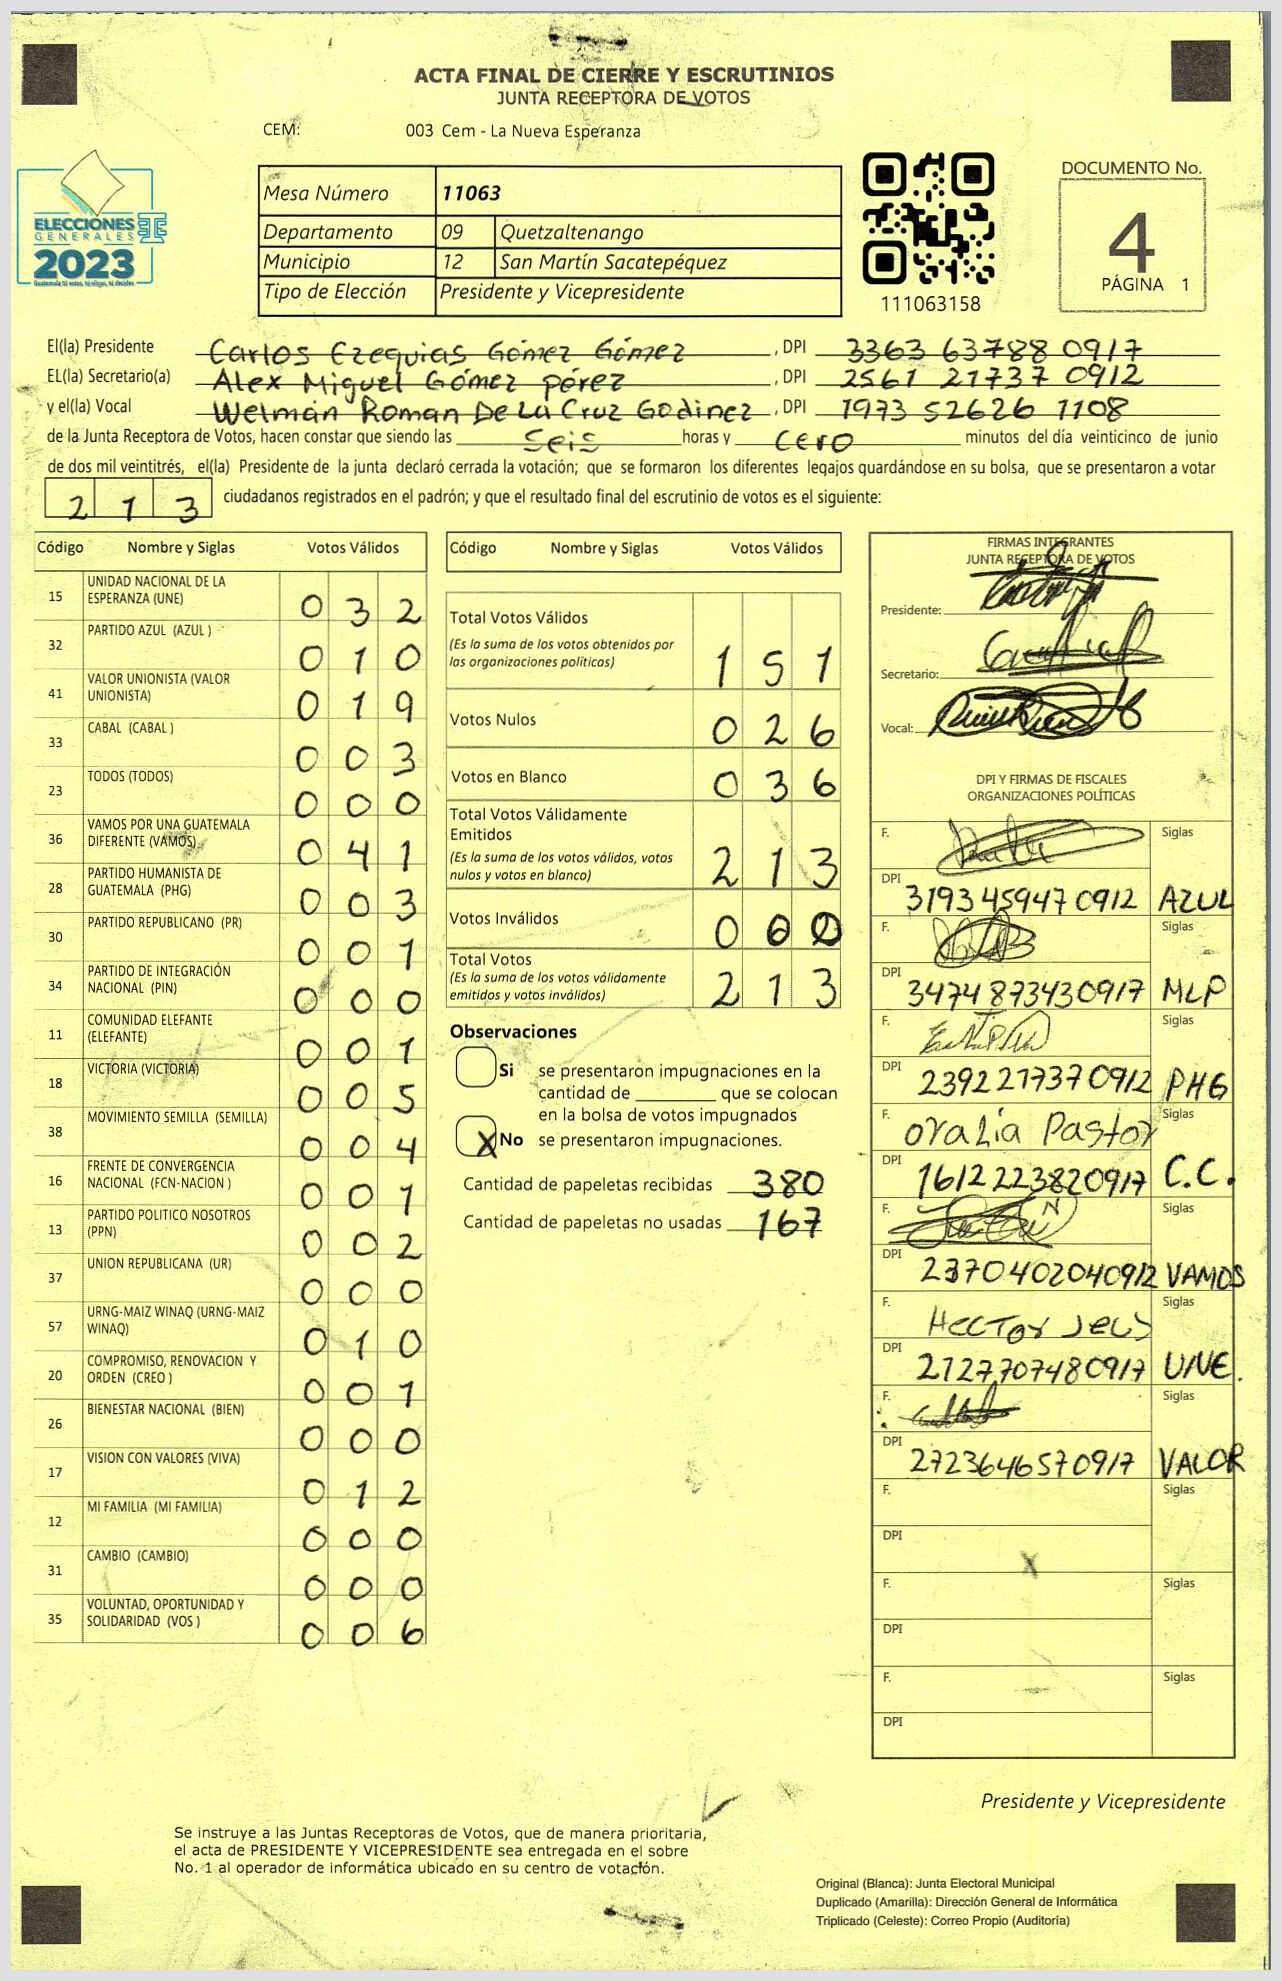 ACTA FINAL DE CIERRE Y ESCRUTINIOS
JUNTA RECEPTORA DE VOTOS
CEM: 003 Cem - La Nueva Esperanza
ELECCIONES
GENERALES
2023
Mesa Número 11063
Departamento 09 Quetzaltenango
Municipio 12 San Martín Sacatepéquez
Tipo de Elección Presidente y Vicepresidente
111063158
DOCUMENTO No.
4
PÁGINA 1
El(la) Presidente Carlos Ezequias Gómez Gómez, DPI 3363 63788 0917
EL(la) Secretario(a) Alex Miguel Gómez pérez, DPI 2561 21737 0912
y el(la) Vocal Welman Roman De La Cruz Godinez, DPI 1973 52626 1108
de la Junta Receptora de Votos, hacen constar que siendo las seis horas y cero minutos del día veinticinco de junio
de dos mil veintitrés, el(la) Presidente de la junta declaró cerrada la votación; que se formaron los diferentes legajos guardándose en su bolsa, que se presentaron a votar
213 ciudadanos registrados en el padrón; y que el resultado final del escrutinio de votos es el siguiente:
Código Nombre y Siglas Votos Válidos
15 UNIDAD NACIONAL DE LA ESPERANZA (UNE) 032
32 PARTIDO AZUL (AZUL ) 010
41 VALOR UNIONISTA (VALOR UNIONISTA) 019
33 CABAL (CABAL ) 003
23 TODOS (TODOS) 000
36 VAMOS POR UNA GUATEMALA DIFERENTE (VAMOS) 041
28 PARTIDO HUMANISTA DE GUATEMALA (PHG) 003
30 PARTIDO REPUBLICANO (PR) 001
34 PARTIDO DE INTEGRACIÓN NACIONAL (PIN) 000
11 COMUNIDAD ELEFANTE (ELEFANTE) 001
18 VICTORIA (VICTORIA) 005
38 MOVIMIENTO SEMILLA (SEMILLA) 004
16 FRENTE DE CONVERGENCIA NACIONAL (FCN-NACION ) 001
13 PARTIDO POLITICO NOSOTROS (PPN) 002
37 UNION REPUBLICANA (UR) 000
57 URNG-MAIZ WINAQ (URNG-MAIZ WINAQ) 010
20 COMPROMISO, RENOVACION Y ORDEN (CREO ) 001
26 BIENESTAR NACIONAL (BIEN) 000
17 VISION CON VALORES (VIVA) 012
12 MI FAMILIA (MI FAMILIA) 000
31 CAMBIO (CAMBIO) 000
35 VOLUNTAD, OPORTUNIDAD Y SOLIDARIDAD (VOS ) 006
Código Nombre y Siglas Votos Válidos
Total Votos Válidos
(Es la suma de los votos obtenidos por
las organizaciones políticas) 151
Votos Nulos 026
Votos en Blanco 036
Total Votos Válidamente
Emitidos
(Es la suma de los votos válidos, votos
nulos y votos en blanco) 213
Votos Inválidos 000
Total Votos
(Es la suma de los votos válidamente
emitidos y votos inválidos) 213
Observaciones
Si se presentaron impugnaciones en la
cantidad de ________ que se colocan
en la bolsa de votos impugnados
X No se presentaron impugnaciones.
Cantidad de papeletas recibidas 380
Cantidad de papeletas no usadas 167
FIRMAS INTEGRANTES
JUNTA RECEPTORA DE VOTOS
Presidente:
Secretario:
Vocal:
DPI Y FIRMAS DE FISCALES
ORGANIZACIONES POLÍTICAS
F. Siglas
DPI 3193459470912 AZUL
F. Siglas
DPI 3474873430917 MLP
F. Siglas
DPI 2392217370912 PHG
F. Oralia Pastor Siglas
DPI 1612223820917 C.C.
F. Siglas
DPI 2370402040912 VAMOS
F. Hector Siglas
DPI 2127707480917 UNE.
F. Siglas
DPI 2723646570917 VALOR
F. Siglas
DPI
F. Siglas
DPI
F. Siglas
DPI
Presidente y Vicepresidente
Se instruye a las Juntas Receptoras de Votos, que de manera prioritaria,
el acta de PRESIDENTE Y VICEPRESIDENTE sea entregada en el sobre
No. 1 al operador de informática ubicado en su centro de votación.
Original (Blanca): Junta Electoral Municipal
Duplicado (Amarilla): Dirección General de Informática
Triplicado (Celeste): Correo Propio (Auditoría)